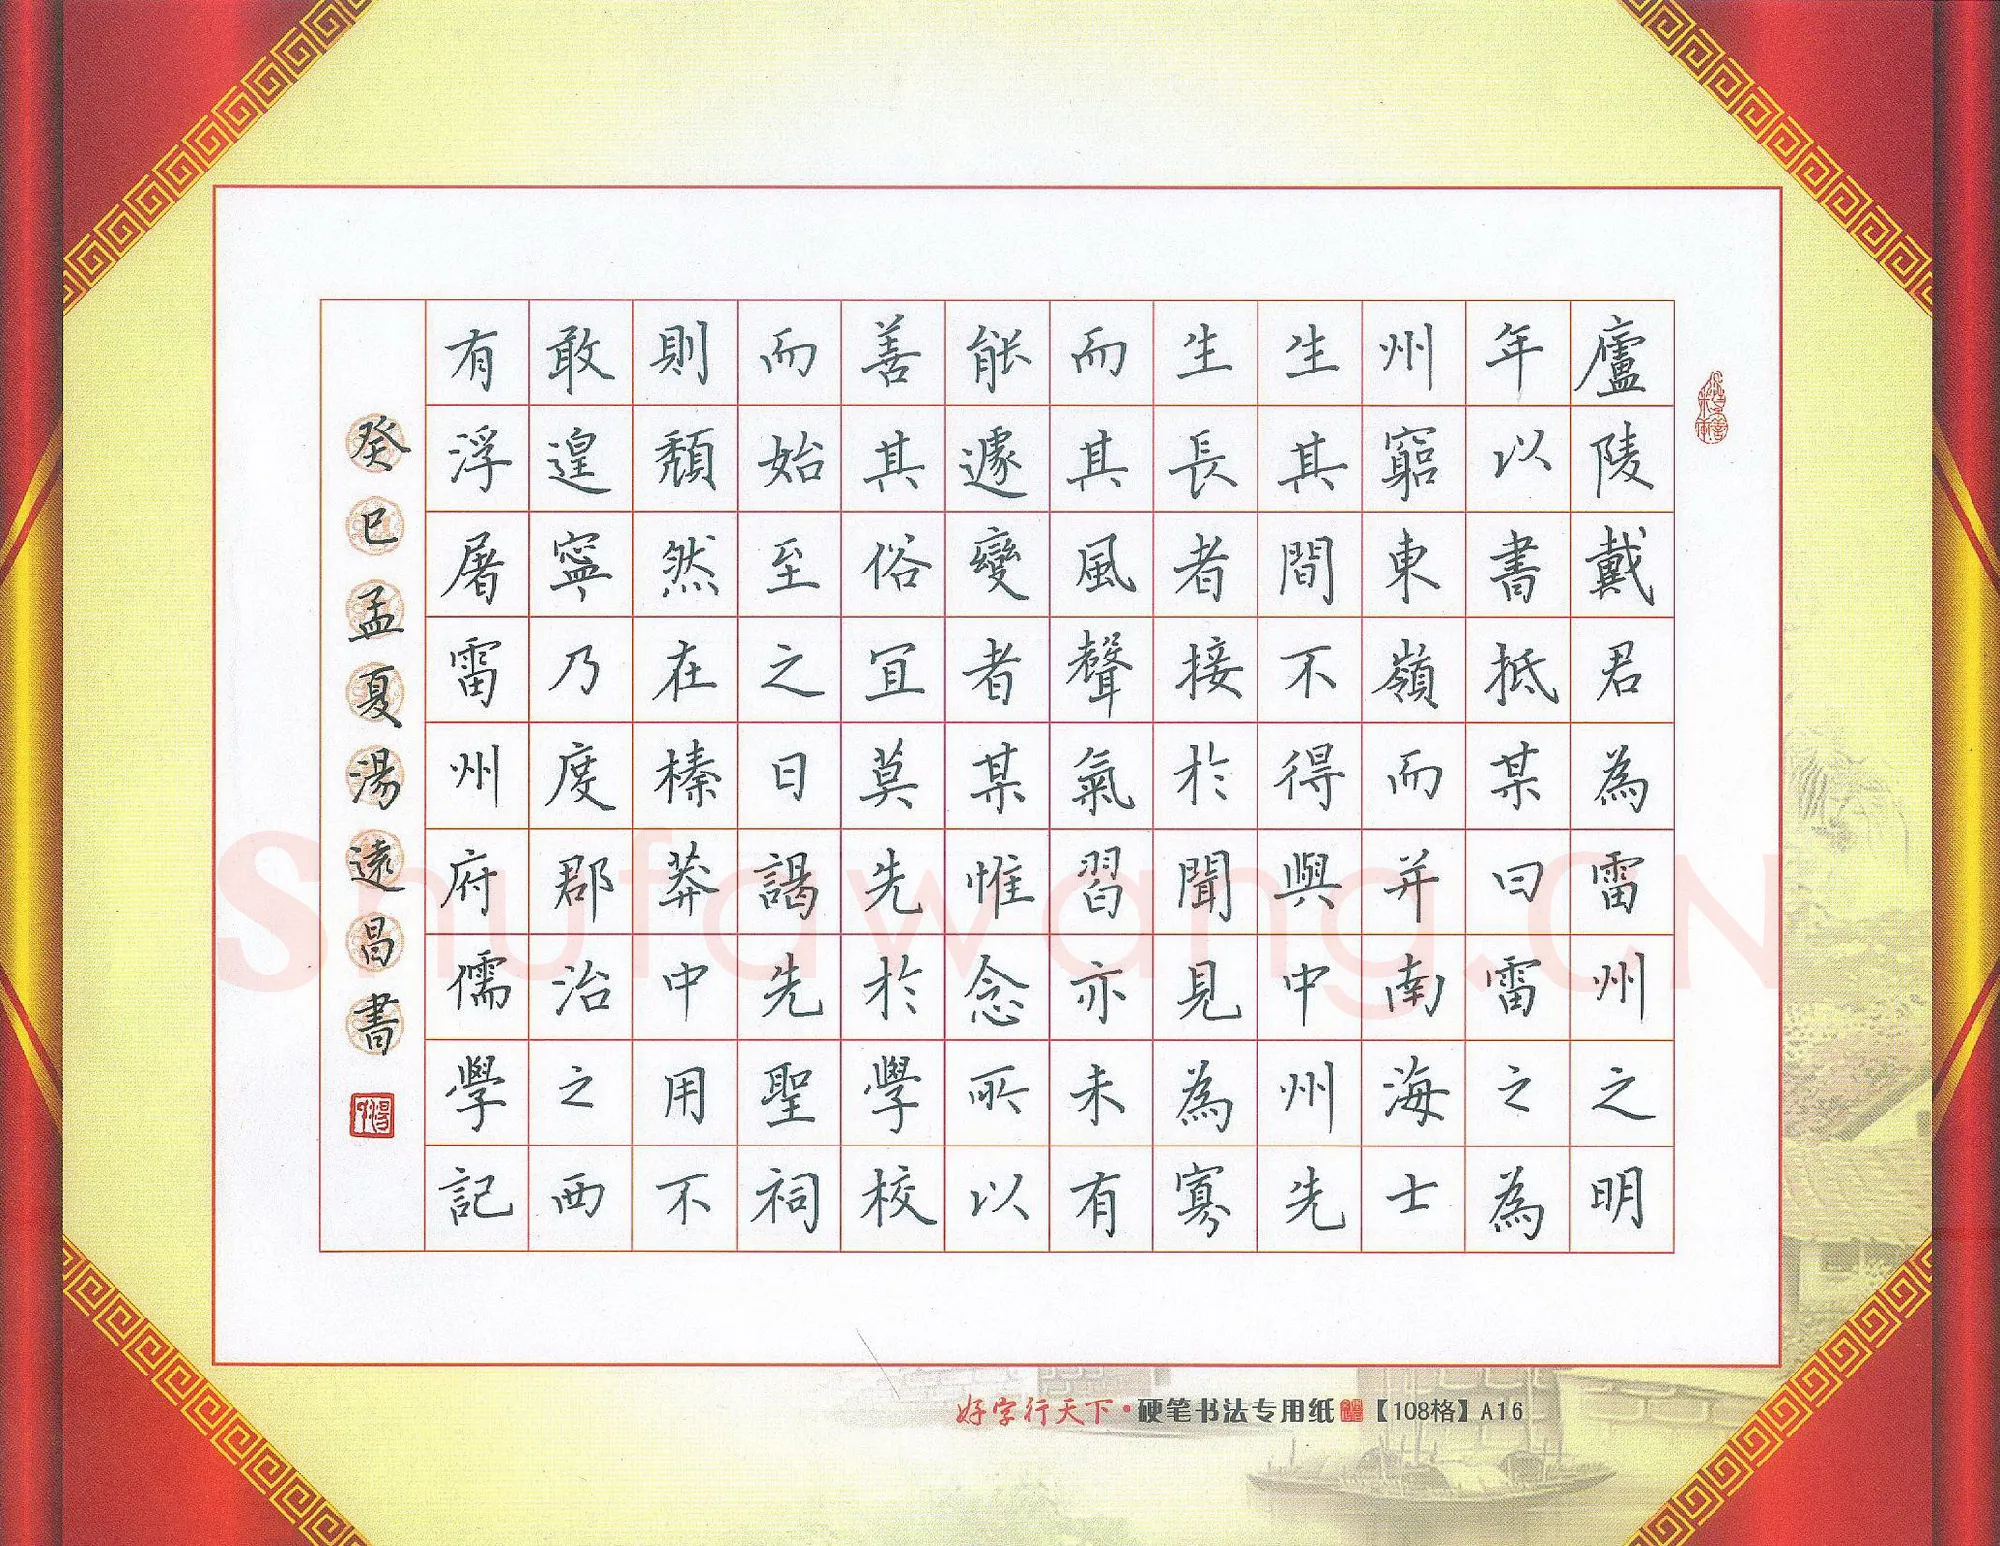 廬陵戴君為雷州之明
年以書抵某曰雷之為
州窮東嶺而并南海士
生其間不得與中州先
生長者接於聞見為寡
而其風聲氣習亦未有
能遽變者某惟念所以
善其俗宜莫先於學校
而始至之日謁先聖祠
則頹然在榛莽中用不
敢遑寧乃度郡治之西
有浮屠雷州府儒學記
癸巳孟夏湯遠昌書
好字行天下·硬笔书法专用纸【108格】A16
Shufawang.CN